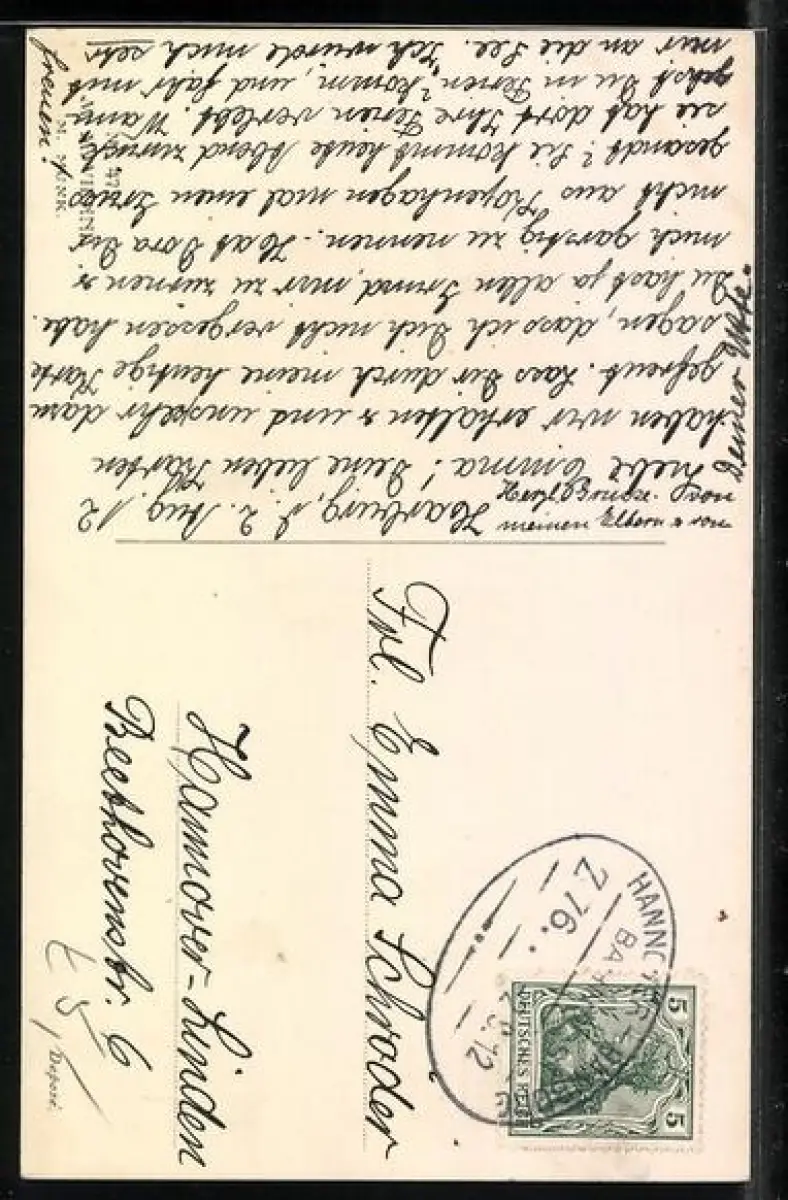 Harburg, d. 2. Aug. 12
Liebe Emma! Deine lieben Karten
haben wir erhalten u und uns sehr dazu
gefreut. Lass Dir durch meine heutige Karte
sagen, dass ich Dich nicht vergessen habe.
Du hast ja allen Grund, mir zu zürnen u.
mich garstig zu nennen. Hat Dora Dir
nicht aus Kopenhagen mal einen Gruss
gesandt? Sie kommt heute Abend zurück
sie hat dort Ihre Ferien verlebt. Wann
gehst Du in Ferien? komm, und fahr mit
mir an die See. Ich würde mich sehr
freuen!
Herzl. Grüsse von
meinen Eltern u von
Deiner
M. MUNK.
Frl. Emma Schröder
Hannover-Linden
Beethovenstr. 6
HANN
BA
Z 76.
12
5 5
DEUTSCHES REICH
Deposé.